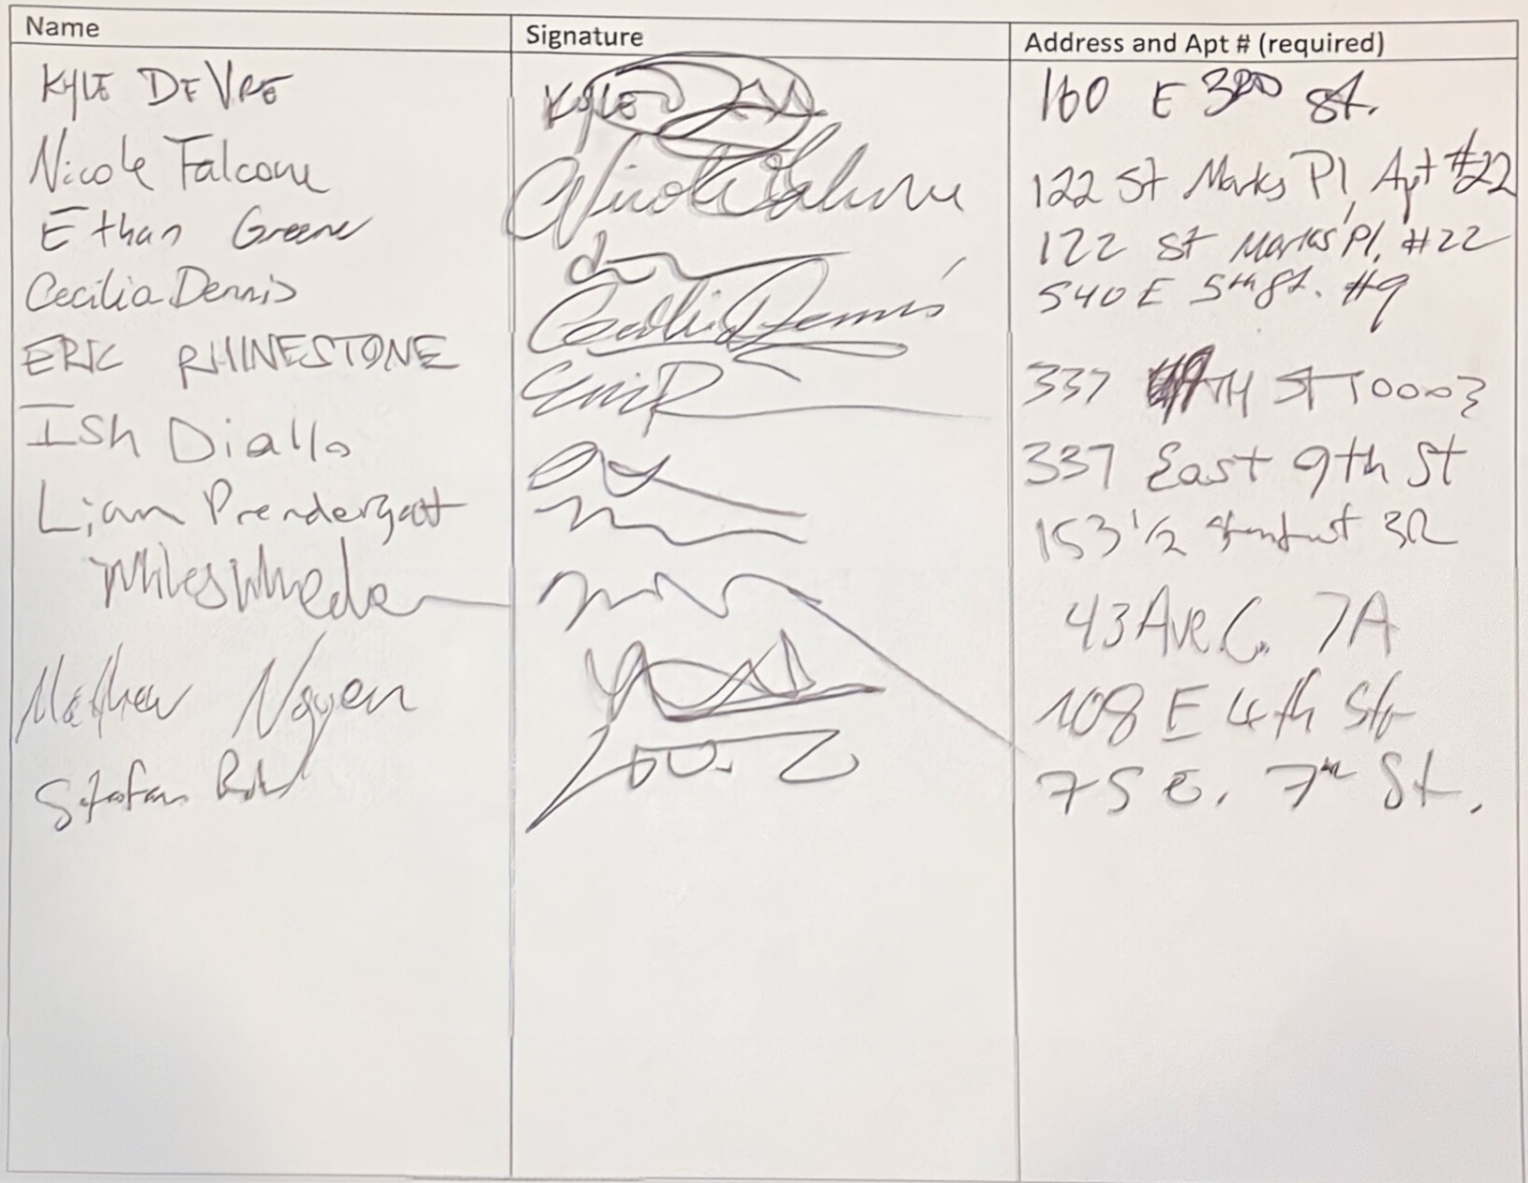 Name Signature Address and Apt # (required)
KYLE DEVRE Kyle 160 E 3RD St.
Nicole Falcone Nicole Falcone 122 St Marks Pl, Apt #22
Ethan Greene 122 St Marks Pl. #22
Cecilia Dennis Cecilia Dennis 540 E 5th St. #9
ERIC RHINESTONE Eric R 337 9TH ST 10003
Ish Diallo 337 East 9th St
Liam Prendergast 153 1/2 3R
Miles 43 Ave. C. 7A
Mathew Nguyen 108 E 4th St
Stefan 75 E. 7th St.